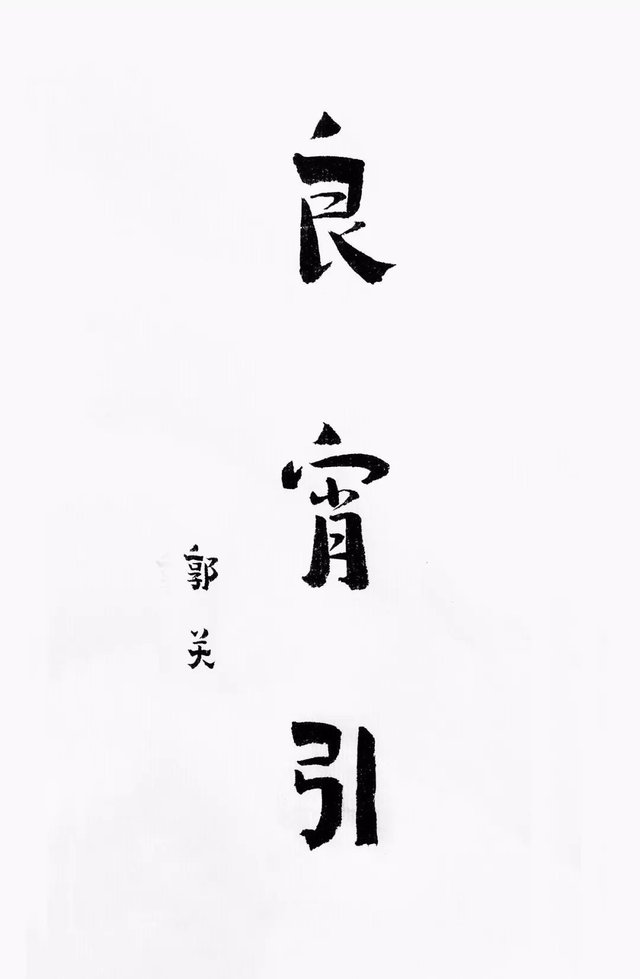 良宵引
郭关